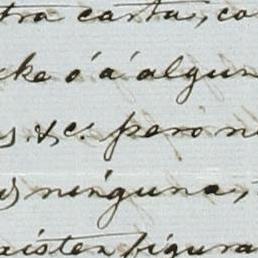 tra carta, co
cke ó á algun
s. &c. pero n
s ninguna,
xisten figura